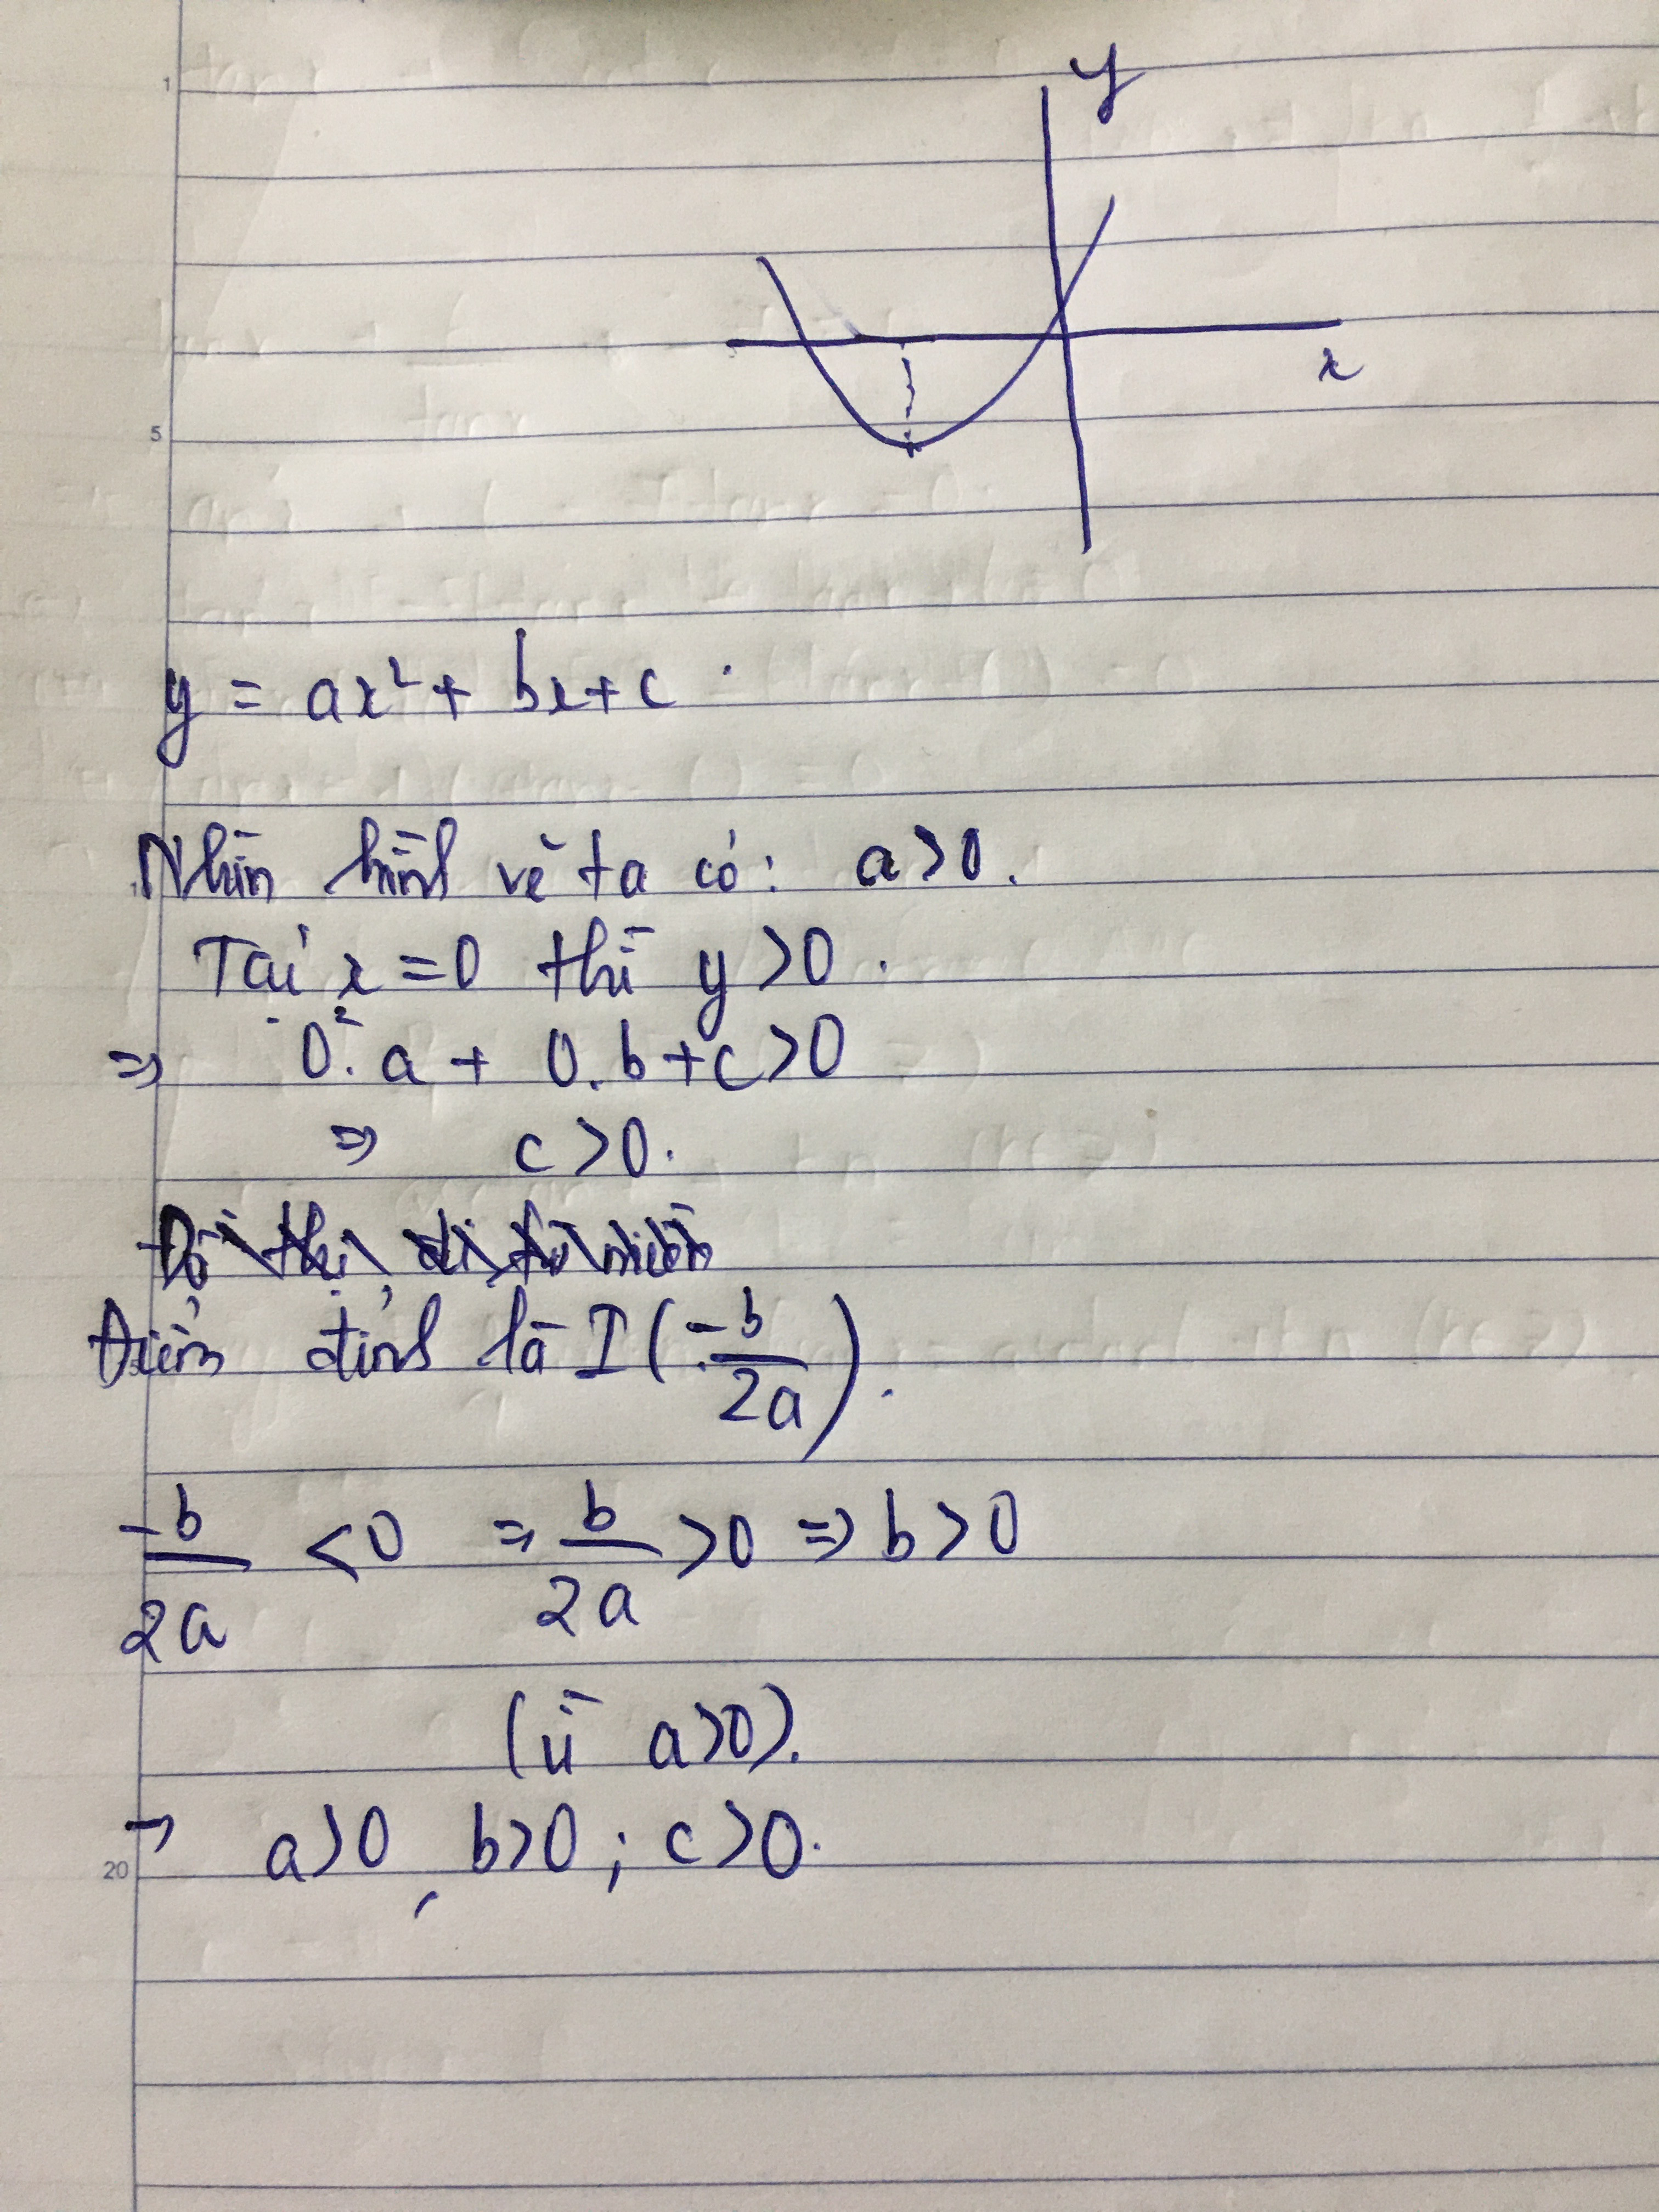 y
x
y = ax² + bx + c
Nhìn hình vẽ ta có: a > 0.
Tại x = 0 thì y > 0.
⇒ 0².a + 0.b + c > 0
⇒ c > 0.
Đồ thị đi từ miền
Điểm đỉnh là I(-b/2a).
-b/2a < 0 ⇒ b/2a > 0 ⇒ b > 0
(vì a > 0).
→ a > 0, b > 0; c > 0.
1
5
20